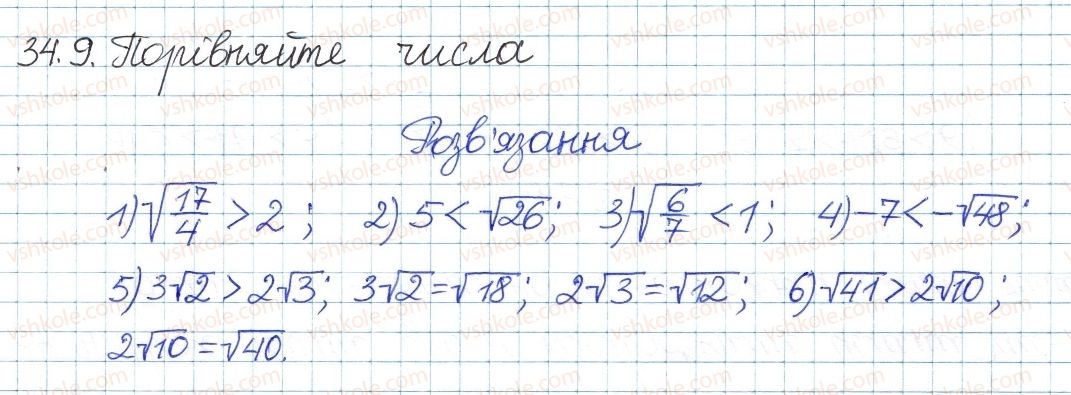 34.9. Порівняйте числа
Розв'язання
1) √(17/4) > 2 ; 2) 5 < √26; 3) √(6/7) < 1; 4) -7 < -√48;
5) 3√2 > 2√3; 3√2 = √18; 2√3 = √12; 6) √41 > 2√10;
2√10 = √40.